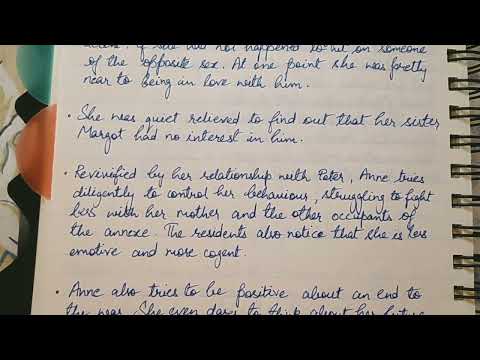 if she had not happened to hit on someone
of the opposite sex. At one point she was pretty
near to being in love with him.
• She was quiet relieved to find out that her sister,
Margot had no interest in him.
• Revivified by her relationship with Peter, Anne tries
diligently to control her behaviour, struggling to fight
less with her mother and the other occupants of
the annexe. The residents also notice that she is less
emotive and more cogent.
• Anne also tries to be positive about an end to
the war. She even dares to think about her future